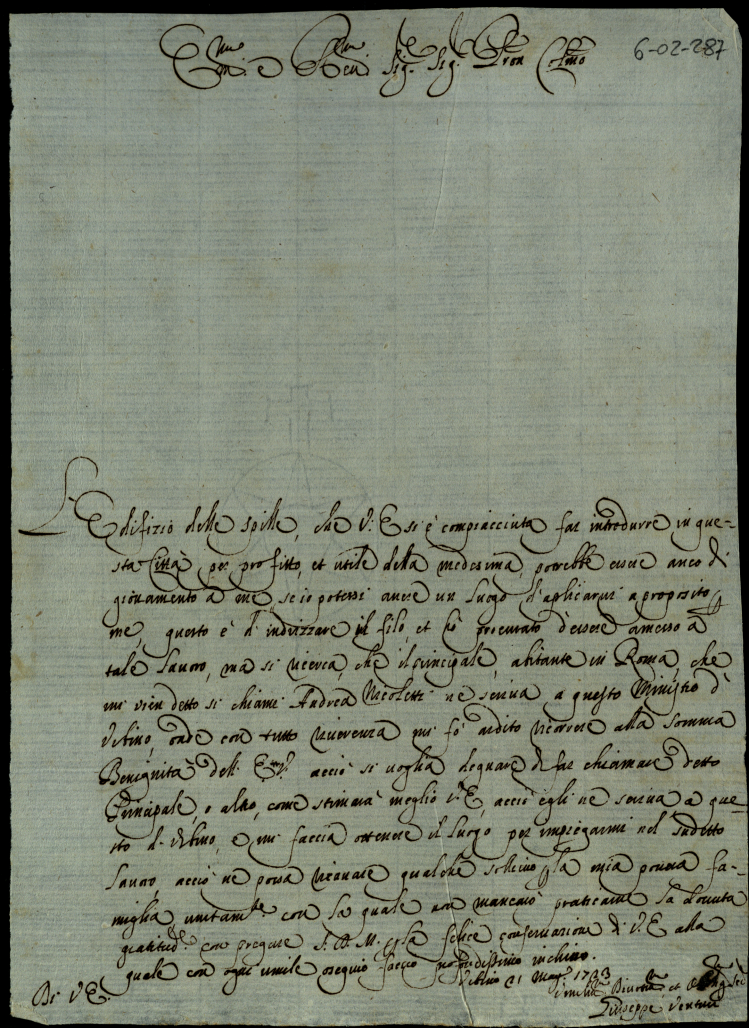 6-02-287
Em.mo e Rev. Sig. Sig. Pron Col.mo
L'Edifizio delle spille, che V. E. si è compiacciuta far introdurre in que-
sta Città per profitto, et utile della medesima, potrebbe essere anco di
giovamento a me, se io potessi avere un luogo d'aplicarvi a proposito p
me, questo è d'indrizzare il filo, et hò procurato d'essere amesso à
tale lavoro, ma si ricerca, che il principale, abitante in Roma, che
mi vien detto si chiami Andrea Nicoletti ne scriva a questo Ministro d'
Urbino, onde con tutta riverenza mi fò ardito ricorrere alla somma
Benignità dell' Em.V. acciò si voglia degnare di far chiamare detto
Principale, o altro, come stimarà meglio V. E., acciò egli ne scriva a que-
sto d'Urbino, e mi faccia ottenere il luogo per impiegarmi nel sudetto
lavoro, acciò ne possa ricavare qualche sollievo p la mia povera fa-
miglia, unitam.te con la quale non mancarò praticare la dovuta
gratitud.e con pregare S. D. M. p la felice conservazione di V. E. alla
quale con ogni umile ossequio faccio profondissimo inchino.
Di V. E. Urbino 21 Mag. 1733
Umil.mo Divot.mo et Obblig. Se.
Giuseppe Venturi